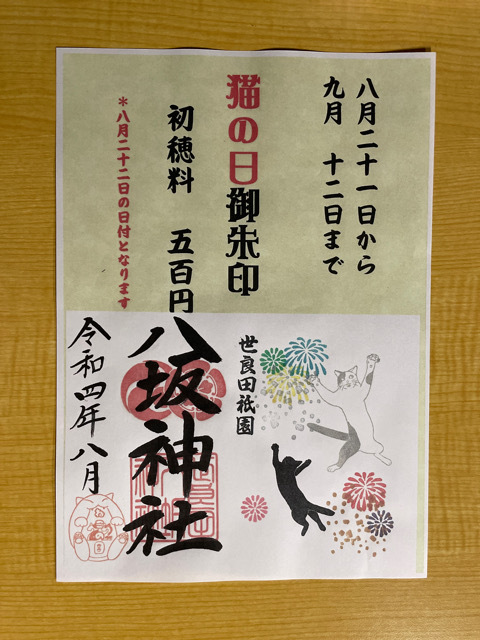 八月二十一日から
九月　十二日まで
猫の日御朱印
初穂料　五百円
＊八月二十二日の日付となります
世良田祇園
八坂神社
令和四年八月